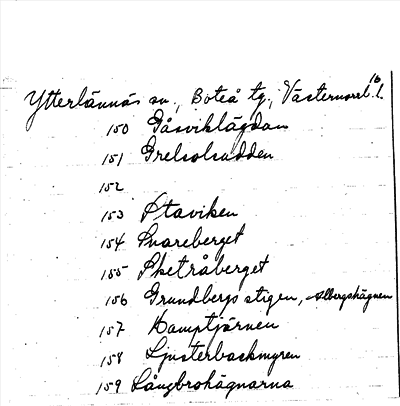 16
Ytterlännäs sn, Boteå tg, Västernorrl. l.
150 Gåsviklägdan
151 Grelsolsudden
152
153 Staviken
154 Snareberget
155 Sketråberget
156 Grundbergsstigen, Albergshägnen
157 Kamptjärnen
158 Ljusterbackmyren
159 Långbrohägnarna